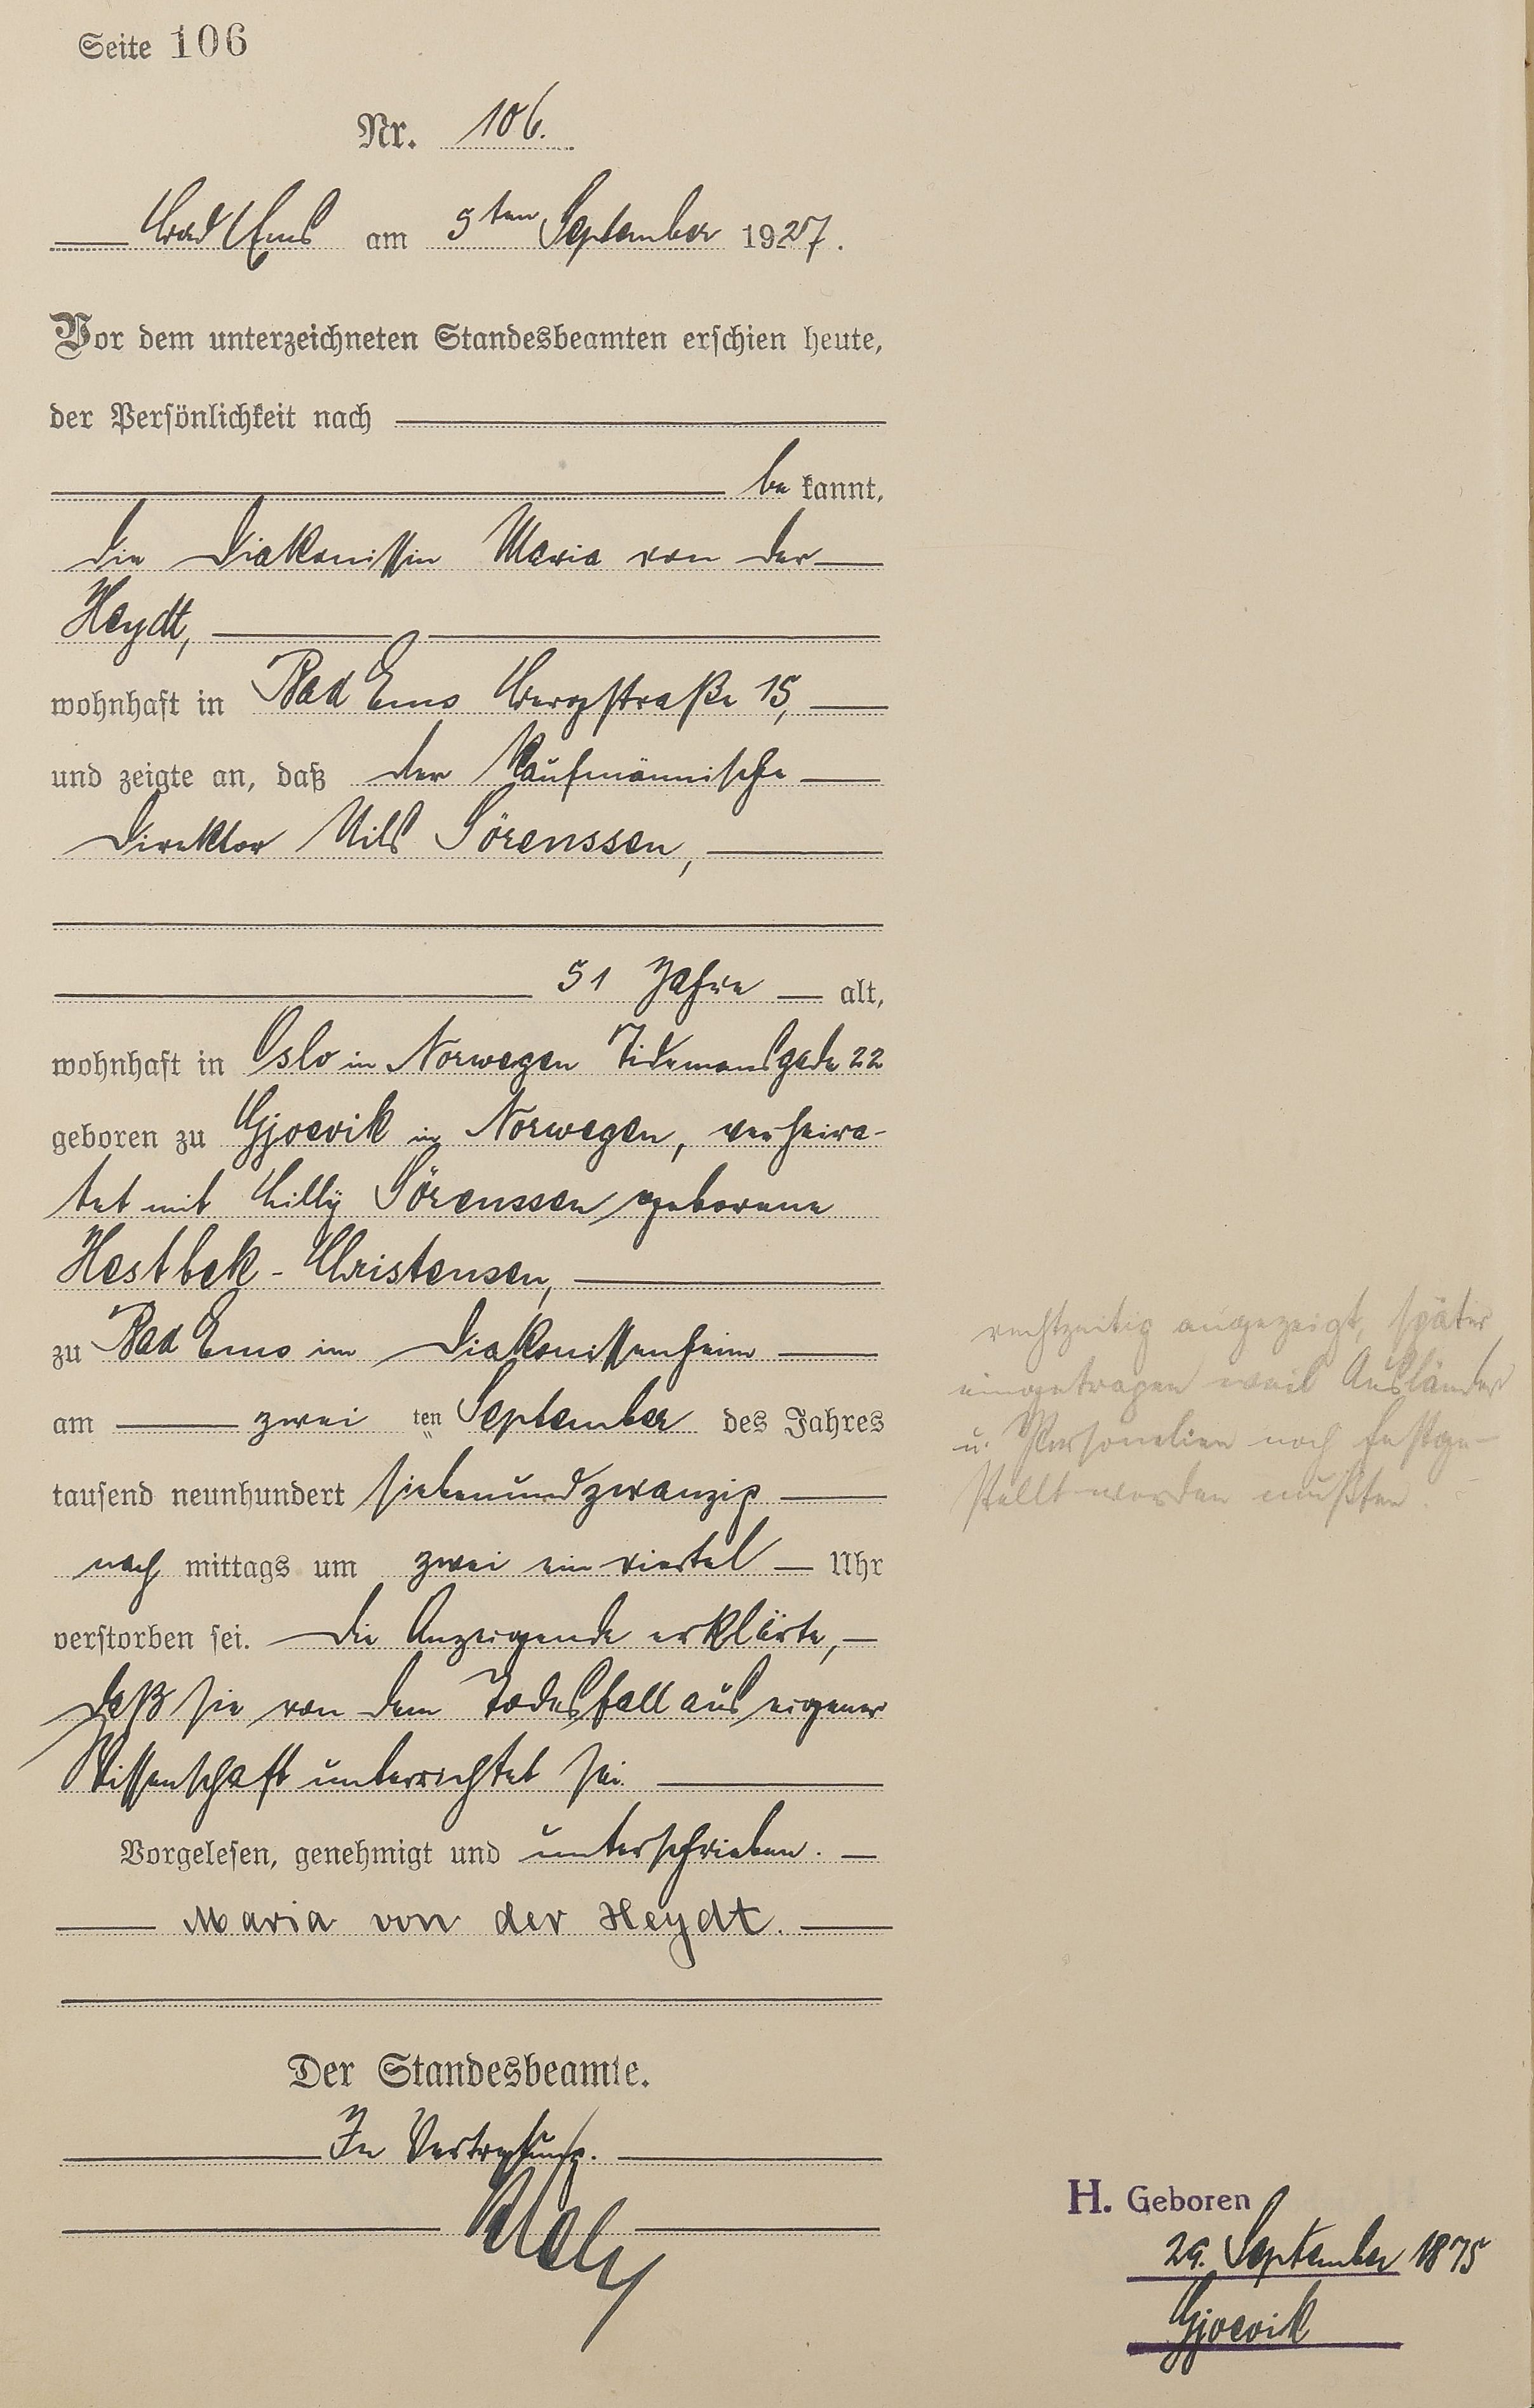 Seite 106
Nr. 106.
Bad Ems am 5ten September 1927.
Vor dem unterzeichneten Standesbeamten erschien heute,
der Persönlichkeit nach
be kannt,
die Diakonissin Maria von der
Heydt,
wohnhaft in Bad Ems Bergstraße 15,
und zeigte an, daß der Kaufmännische
Direktor Nils Sörenssen,
51 Jahre alt,
wohnhaft in Oslo in Norwegen Tidemansgade 22
geboren zu Gjoevik in Norwegen, verheira-
tet mit Lilly Sörenssen geborene
Hestbek-Christensen,
zu Bad Ems im Diakonissenheim
am zwei ten September des Jahres
tausend neunhundert siebenundzwanzig
nach mittags um zwei ein viertel Uhr
verstorben sei. Die Anzeigende erklärte,
daß sie von dem Todesfall aus eigener
Wissenschaft unterrichtet sei.
Vorgelesen, genehmigt und unterschrieben.
Maria von der Heydt.
Der Standesbeamte.
In Vertretung.
rechtzeitig angezeigt, später
eingetragen weil Ausländer
u. Personalien noch festge-
stellt werden mußten.
H. Geboren
29. September 1875
Gjoevik